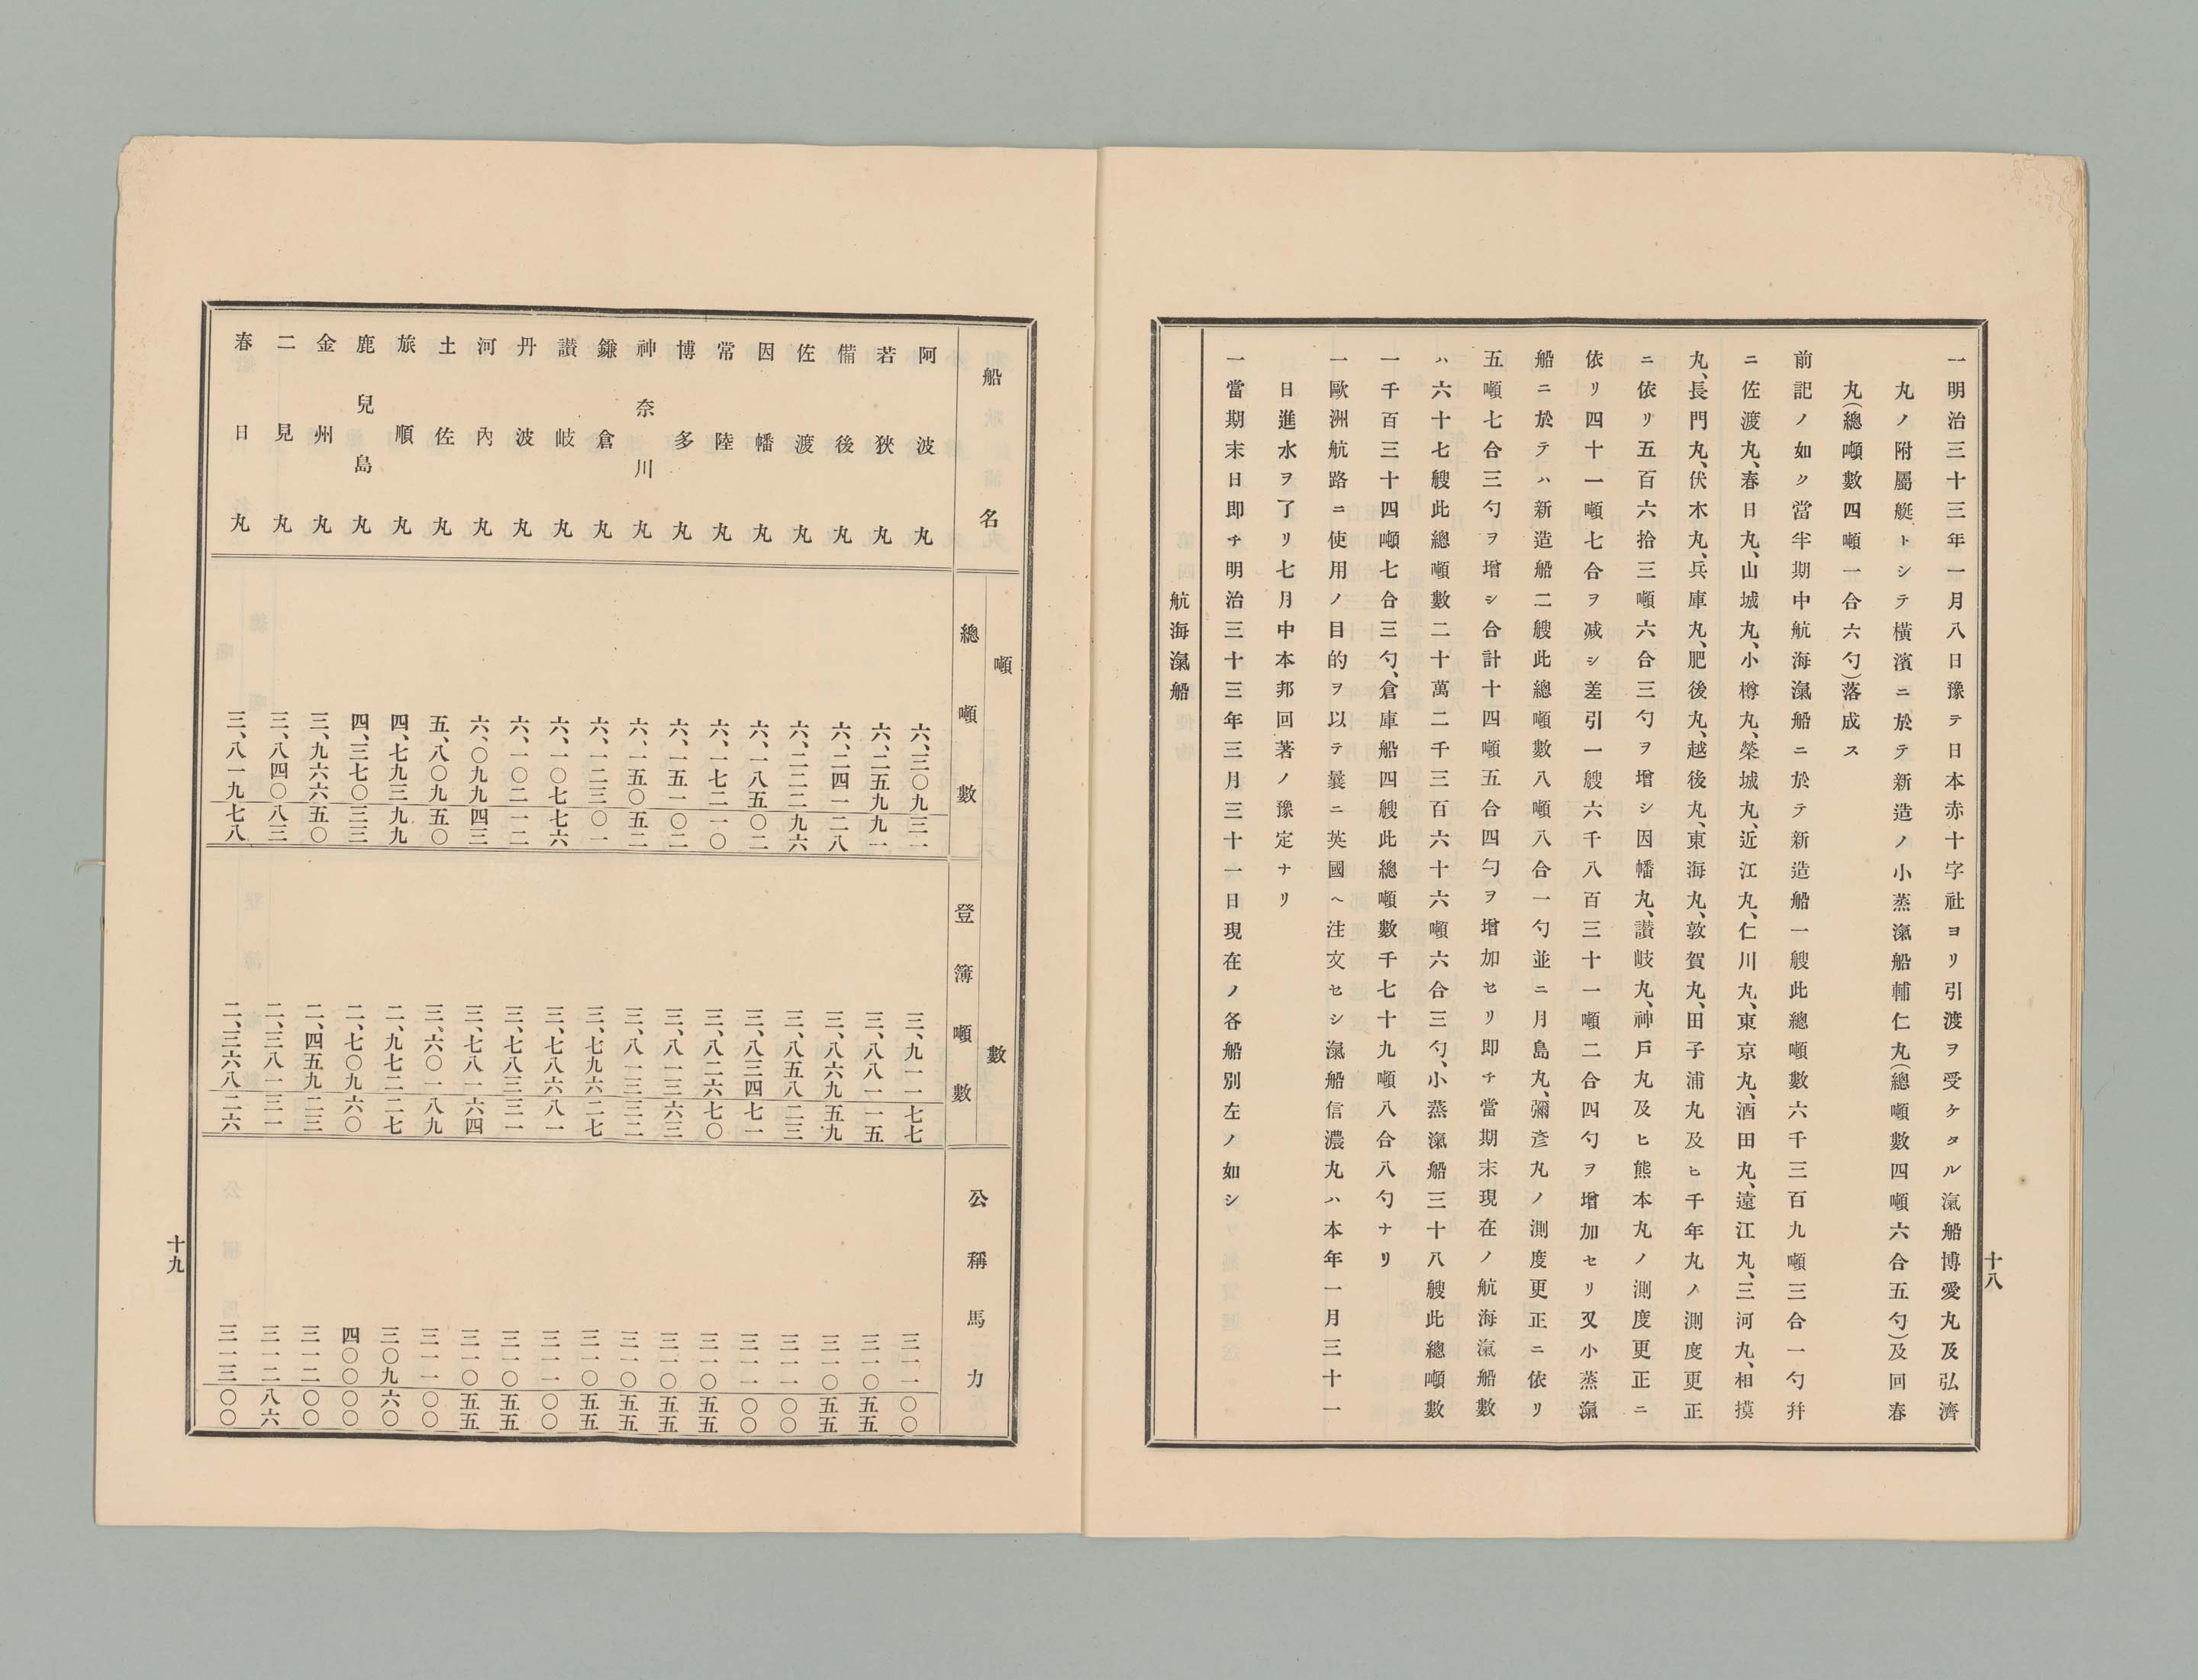 十八
一明治三十三年一月八日豫テ日本赤十字社ヨリ引渡ヲ受ケタル滊船博愛丸及弘濟
丸ノ附屬艇トシテ橫濱ニ於テ新造ノ小蒸滊船輔仁丸(總噸數四噸六合五勺)及回春
丸(總噸數四噸一合六勺)落成ス
前記ノ如ク當半期中航海滊船ニ於テ新造船一艘此總噸數六千三百九噸三合一勺幷
ニ佐渡丸、春日丸、山城丸、小樽丸、榮城丸、近江丸、仁川丸、東京丸、酒田丸、遠江丸、三河丸、相摸
丸、長門丸、伏木丸、兵庫丸、肥後丸、越後丸、東海丸、敦賀丸、田子浦丸及ヒ千年丸ノ測度更正
ニ依リ五百六拾三噸六合三勺ヲ增シ因幡丸、讃岐丸、神戶丸及ヒ熊本丸ノ測度更正ニ
依リ四十一噸七合ヲ减シ差引一艘六千八百三十一噸二合四勺ヲ增加セリ又小蒸滊
船ニ於テハ新造船二艘此總噸數八噸八合一勺並ニ月島丸、彌彥丸ノ測度更正ニ依リ
五噸七合三勺ヲ增シ合計十四噸五合四勺ヲ增加セリ即チ當期末現在ノ航海滊船數
ハ六十七艘此總噸數二十萬二千三百六十六噸六合三勺、小蒸滊船三十八艘此總噸數
一千百三十四噸七合三勺、倉庫船四艘此總噸數千七十九噸八合八勺ナリ
一歐洲航路ニ使用ノ目的ヲ以テ曩ニ英國へ注文セシ滊船信濃丸ハ本年一月三十一
日進水ヲ了リ七月中本邦回著ノ豫定ナリ
一當期末日即チ明治三十三年三月三十一日現在ノ各船別左ノ如シ
航海滊船
船名 噸數 總噸數 登簿噸數 公稱馬力
阿波丸 六、三〇九三一 三、九一一七七 三一一〇〇
若狹丸 六、二五九九一 三、八八一一五 三一〇五五
備後丸 六、二四一二八 三、八六九五九 三一〇五五
佐渡丸 六、二二二九六 三、八五八二三 三一一〇〇
因幡丸 六、一八五〇二 三、八三四七一 三一一〇〇
常陸丸 六、一七二一〇 三、八二六七〇 三一〇五五
博多丸 六、一五一〇二 三、八一三六三 三一〇五五
神奈川丸 六、一五〇五二 三、八一三三二 三一〇五五
鎌倉丸 六、一二三〇一 三、七九六二七 三一〇五五
讃岐丸 六、一〇七七六 三、七八六八一 三一一〇〇
丹波丸 六、一〇二一二 三、七八三三一 三一〇五五
河內丸 六、〇九九四三 三、七八一六四 三一〇五五
土佐丸 五、八〇九五〇 三、六〇一八九 三一一〇〇
旅順丸 四、七九三九九 二、九七二二七 三〇九六〇
鹿兒島丸 四、三七〇三三 二、七〇九六〇 四〇〇〇〇
金州丸 三、九六六五〇 二、四五九二三 三一二〇〇
二見丸 三、八四〇八三 二、三八一三一 三一二八六
春日丸 三、八一九七八 二、三六八二六 三一三〇〇
十九